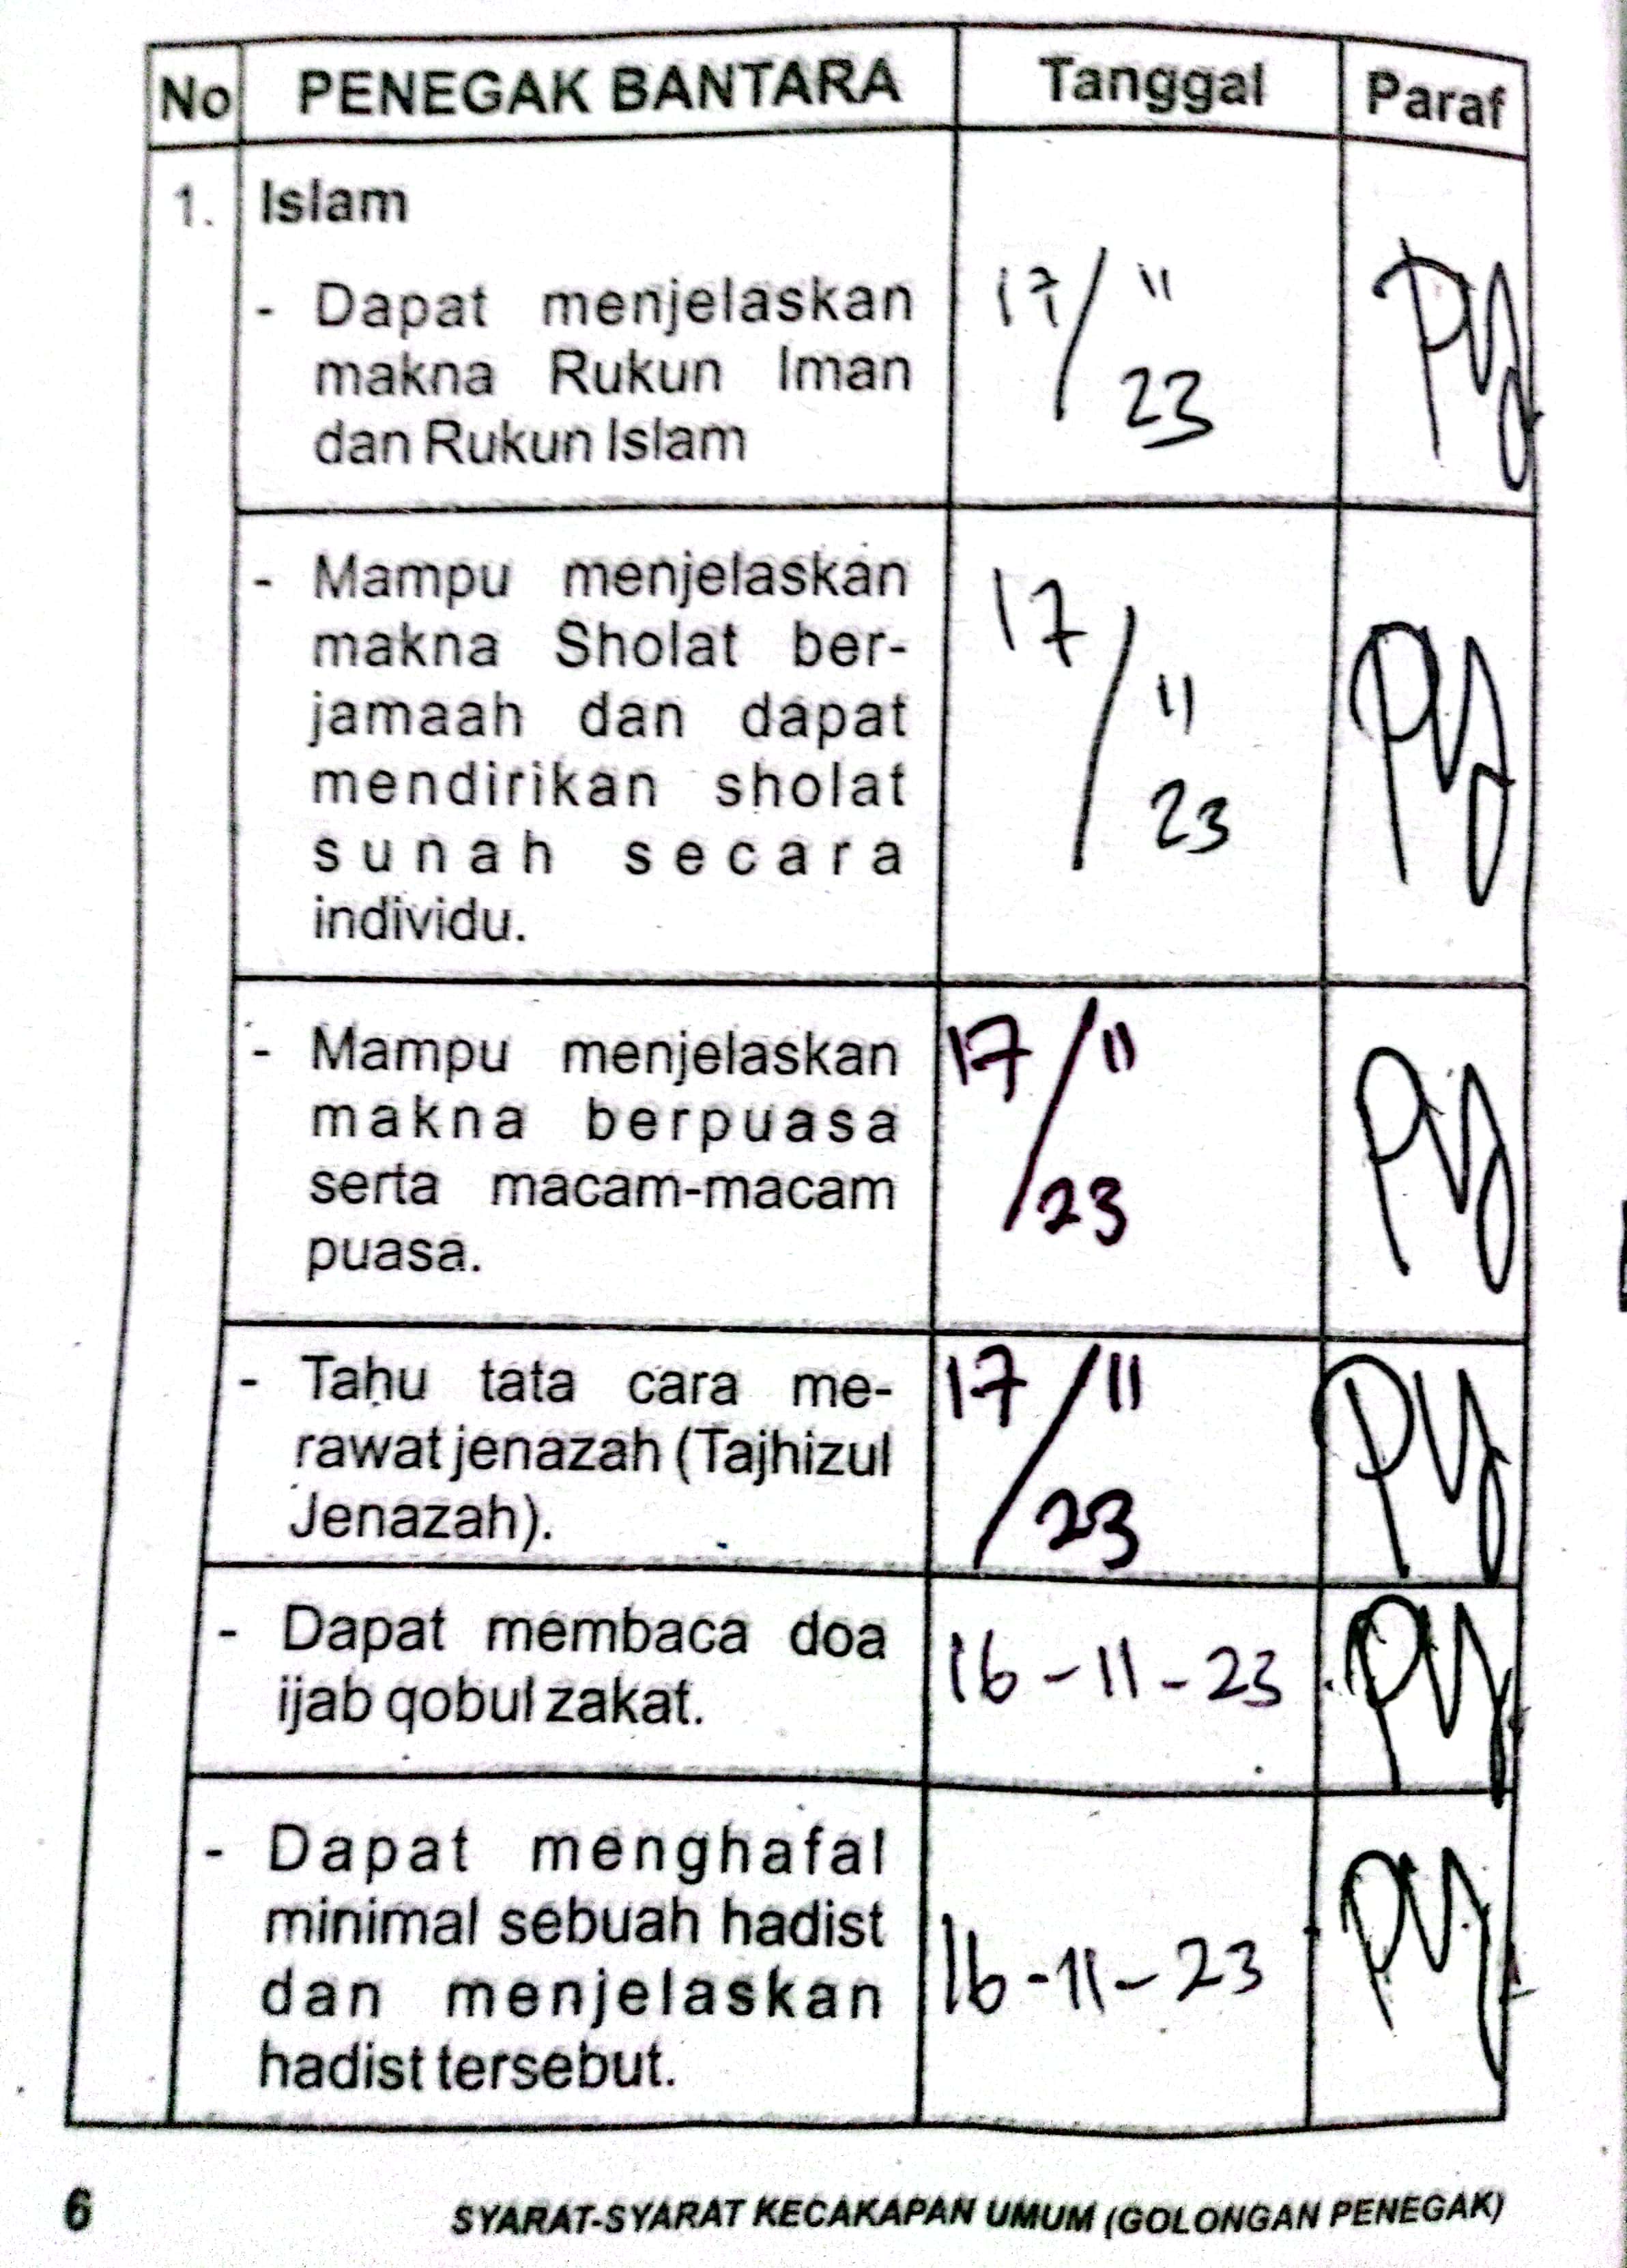 No PENEGAK BANTARA Tanggal Paraf
1. Islam
- Dapat menjelaskan
makna Rukun Iman
dan Rukun Islam
17/11
23
- Mampu menjelaskan
makna Sholat ber-
jamaah dan dapat
mendirikan sholat
sunah secara
individu.
17/11
23
- Mampu menjelaskan
makna berpuasa
serta macam-macam
puasa.
17/11
23
- Tahu tata cara me-
rawat jenazah (Tajhizul
Jenazah).
17/11
23
- Dapat membaca doa
ijab qobul zakat.
16-11-23
- Dapat menghafal
minimal sebuah hadist
dan menjelaskan
hadist tersebut.
16-11-23
6 SYARAT-SYARAT KECAKAPAN UMUM (GOLONGAN PENEGAK)